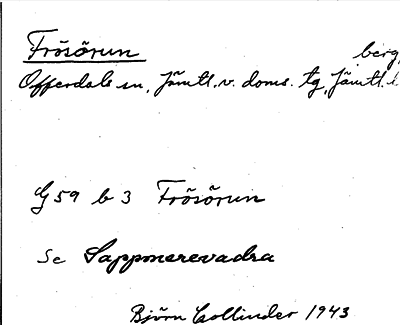 Frösörun berg,
Offerdals sn, Jämtl. v. doms. tg, Jämtl. l
G 59 b 3 Frösörun
Se Sappmerevadra
Björn Collinder 1943